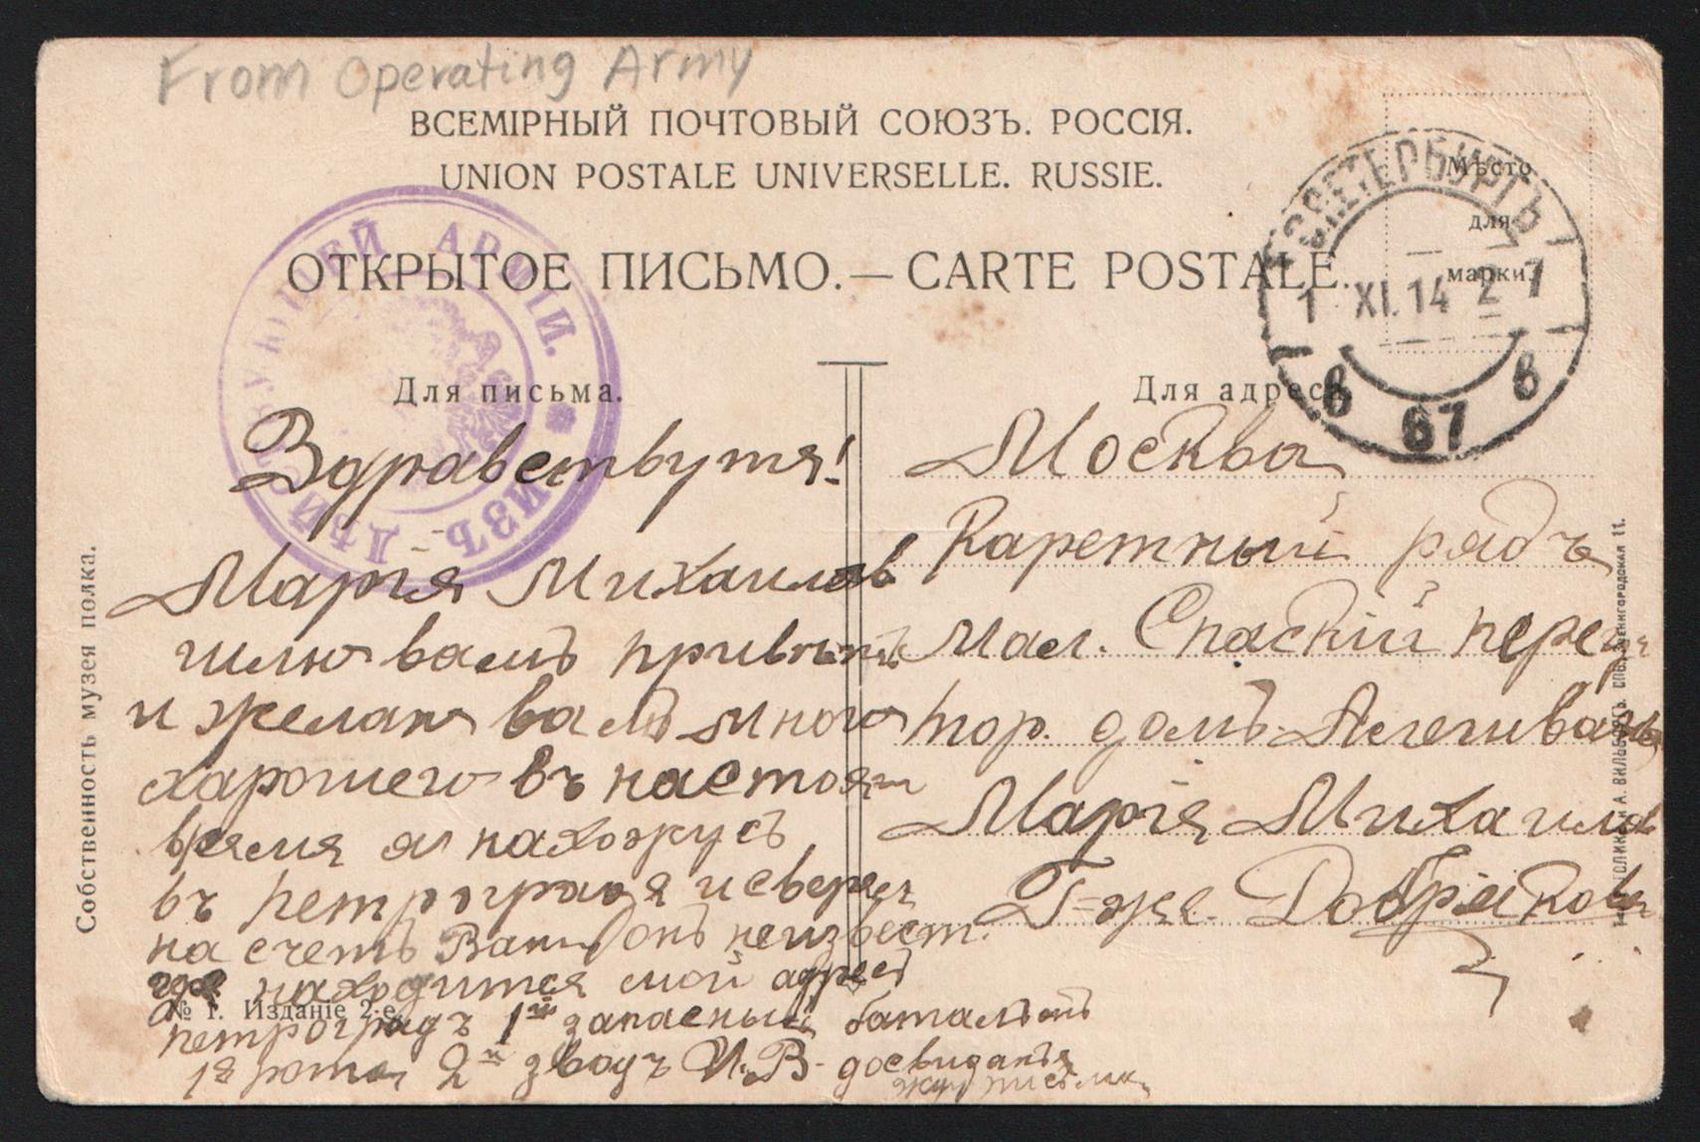 From Operating Army
ВСЕМІРНЫЙ ПОЧТОВЫЙ СОЮЗЪ. РОССІЯ.
UNION POSTALE UNIVERSELLE. RUSSIE.
ОТКРЫТОЕ ПИСЬМО. — CARTE POSTALE.
Мѣсто
для
марки.
С.ПЕТЕРБУРГЪ
1 XI.14 2-7
в 67 в
ИЗЪ ДѢЙСТВУЮЩЕЙ АРМІИ.
Для письма.
Здравствутя!
Марiя Михаилов
шлю вамъ привѣтъ
и желаю вамъ много
харошего въ настоящ
время я нахожусь
въ петроградя и
на счетъ Вани онъ неизвест.
где находится мой адресъ
петроградъ 1й запасный баталіонъ
18 рота 2й зводъ И.В. досвиданья
жду письма
Для адреса.
Москва
Каретный рядъ
Мал. Спаскiй переу
тор. домъ
Марiя Михаилов
Г-же Добряковой
Собственность музея полка.
№ 1. Изданіе 2-е.
А. ВИЛЬБОРГЪ. СПБ. ЗВЕНИГОРОДСКАЯ 11.